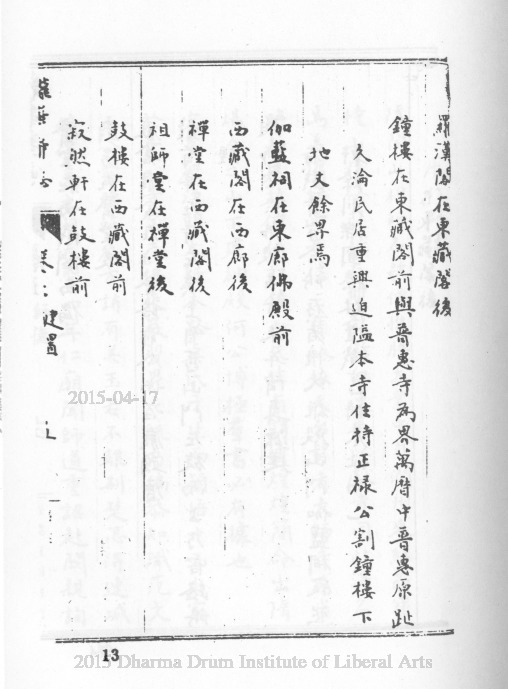 羅漢閣在東藏閣後
鐘樓在東藏閣前與普惠寺為界萬曆中普惠原趾
久淪民居重興迫隘本寺住持正祿公割鐘樓下
地丈餘畀焉
伽藍祠在東廊佛殿前
西藏閣在西廊後
禪堂在西藏閣後
祖師堂在禪堂後
鼓樓在西藏閣前
寂然軒在鼓樓前
建置
2015-04-17
13
2015 Dharma Drum Institute of Liberal Arts